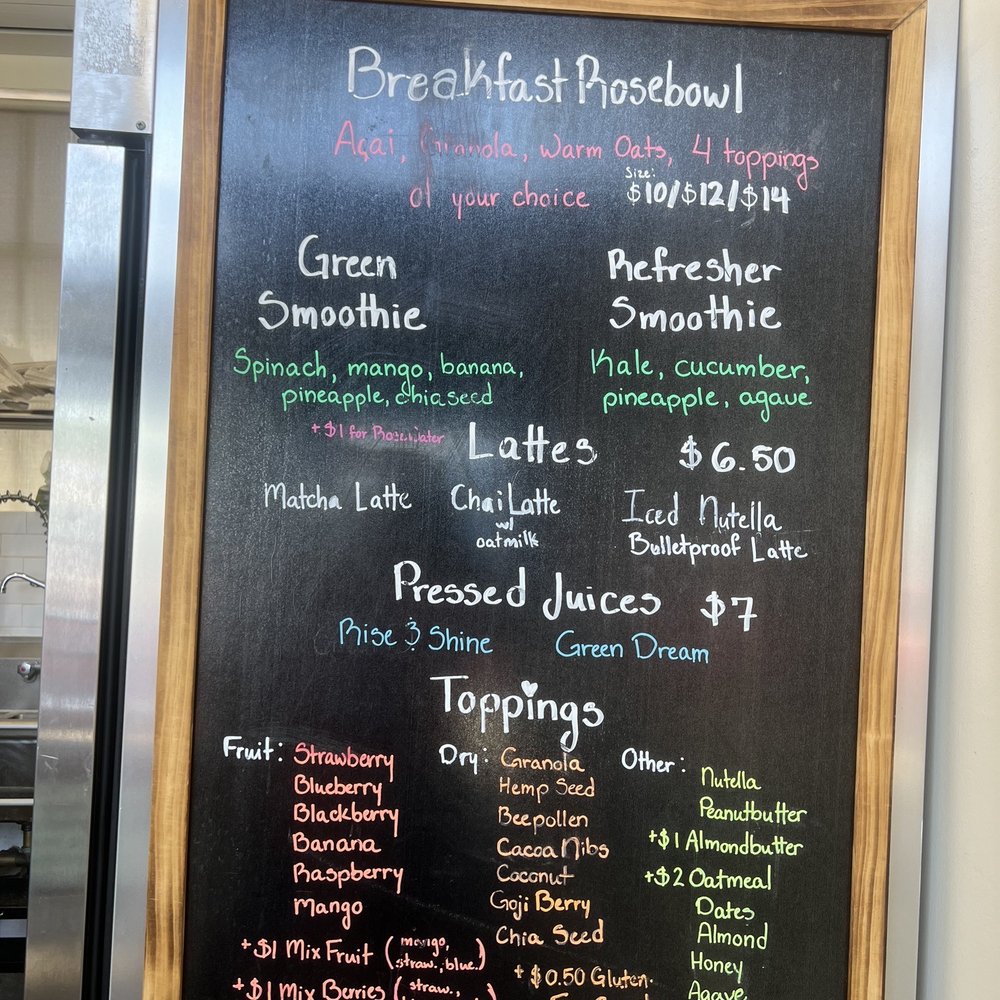 Breakfast Rosebowl
Açai, Granola, Warm Oats, 4 toppings
of your choice
Size:
$10/$12/$14
Green
Smoothie
Spinach, mango, banana,
pineapple, chiaseed
+$1 for Rosewater
Refresher
Smoothie
Kale, cucumber,
pineapple, agave
Lattes $6.50
Matcha Latte
Chai Latte
w/
oatmilk
Iced Nutella
Bulletproof Latte
Pressed Juices $7
Rise & Shine Green Dream
Toppings
Fruit: Strawberry
Blueberry
Blackberry
Banana
Raspberry
Mango
+$1 Mix Fruit (mango,
straw., blue.)
+$1 Mix Berries (straw.,
Dry: Granola
Hemp Seed
Beepollen
Cacoa Nibs
Coconut
Goji Berry
Chia Seed
+$0.50 Gluten-
Other:
Nutella
Peanutbutter
+$1 Almondbutter
+$2 Oatmeal
Dates
Almond
Honey
Agave